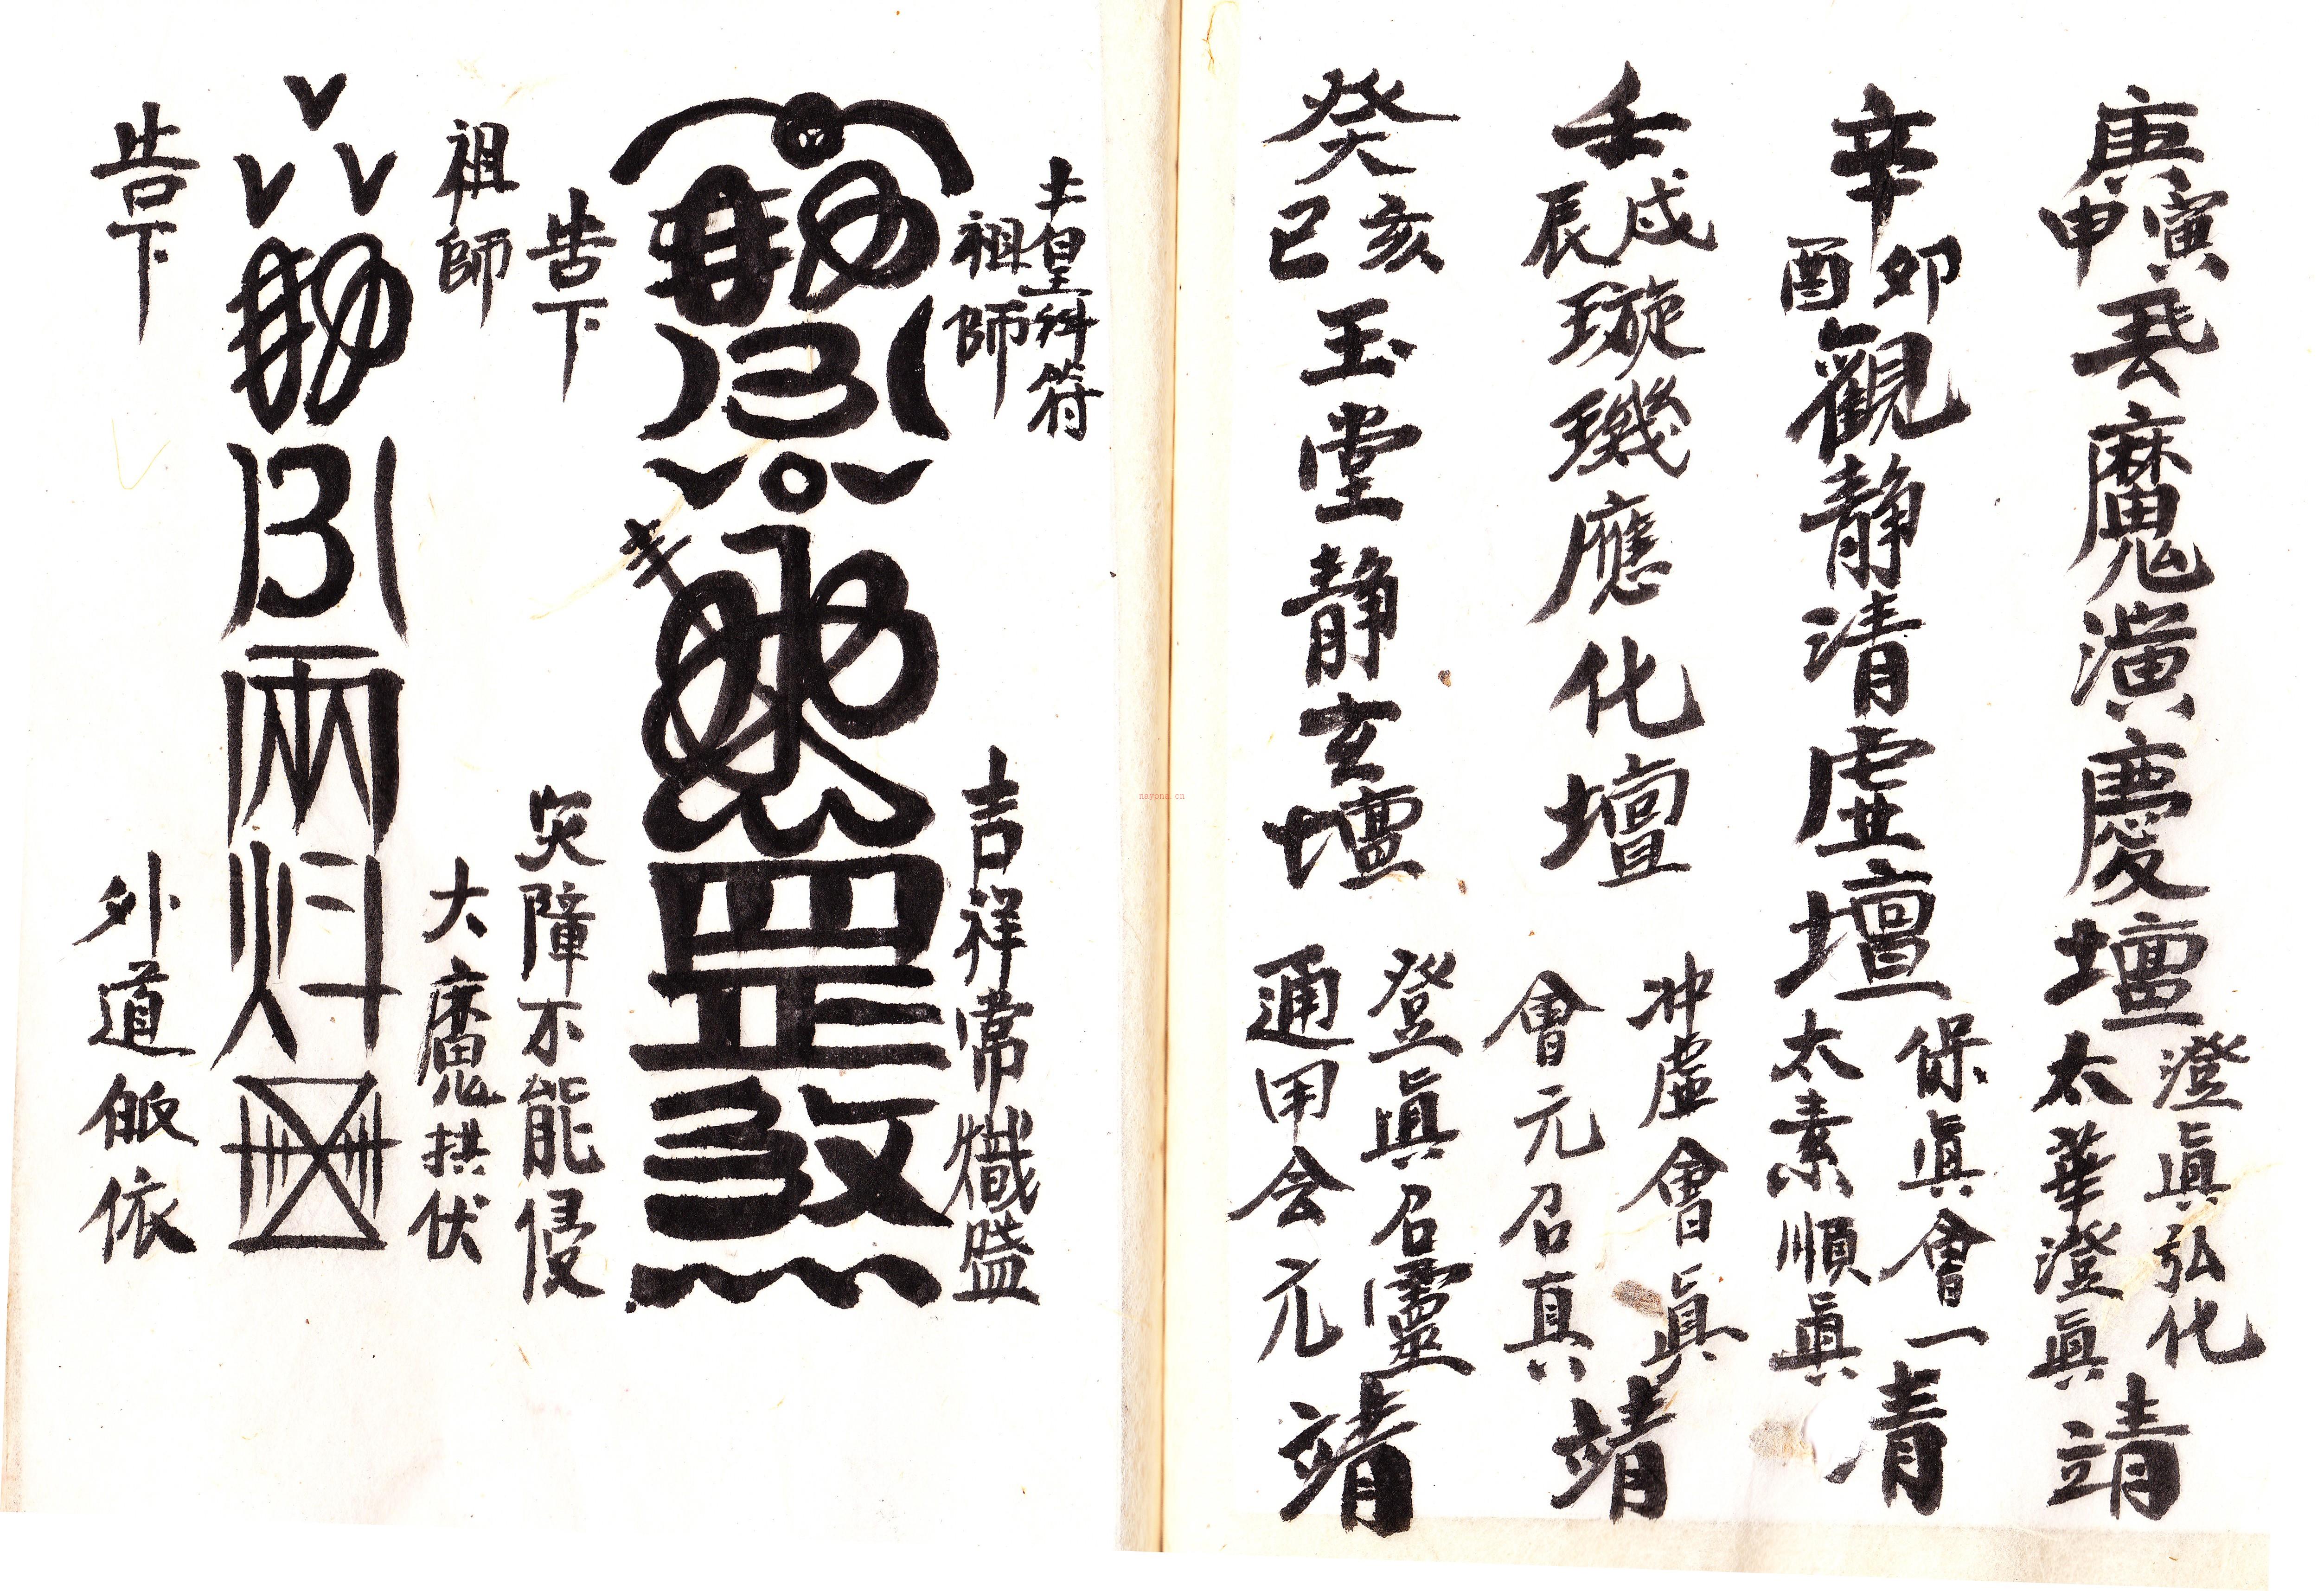 庚寅申炁魔演慶壇澄眞弘化太華澄眞靖
辛卯酉觀靜清虛壇保眞會一太素順眞青
壬戌辰璇璣應化壇冲虛會眞會元召真靖
癸亥巳玉堂靜玄壇登眞召靈通用会元靖
土皇科符
祖師
吉祥常熾盛
罡煞
告下
灾障不能侵
祖師
大魔拱伏
告下
外道皈依
nayona.cn